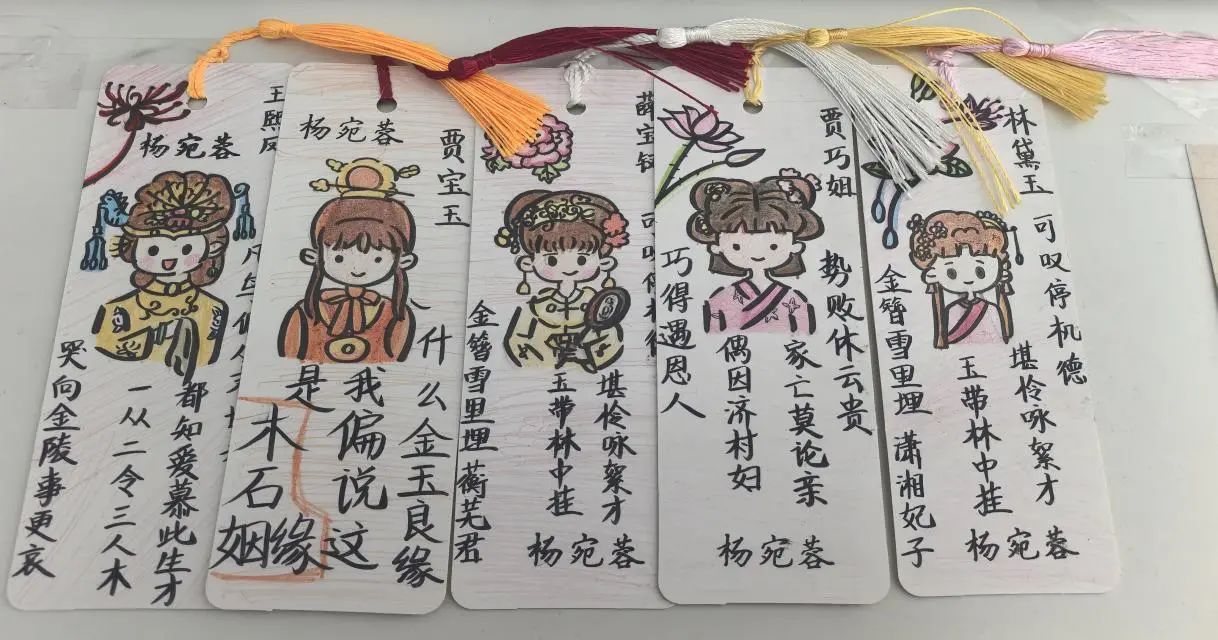 王熙凤
杨宛蓉
都知爱慕此生才
一从二令三人木
哭向金陵事更哀
贾宝玉
杨宛蓉
什么金玉良缘
我偏说这
是
木石姻缘
薛宝钗
堪怜咏絮才
玉带林中挂
金簪雪里埋 蘅芜君
杨宛蓉
贾巧姐
势败休云贵
家亡莫论亲
偶因济村妇
巧得遇恩人
杨宛蓉
林黛玉
可叹停机德
堪怜咏絮才
玉带林中挂
金簪雪里埋 潇湘妃子
杨宛蓉